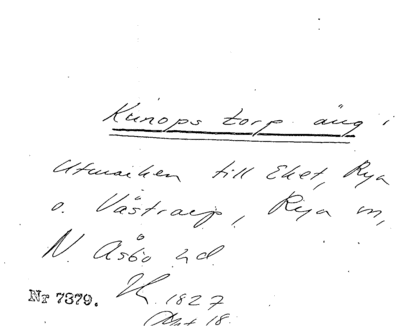 Kunops torp äng i
Utmarken till Eket, Rya
o. Västrarp, Rya sn,
N. Åsbo hd.
Nr 7379. 1827
Akt 18.